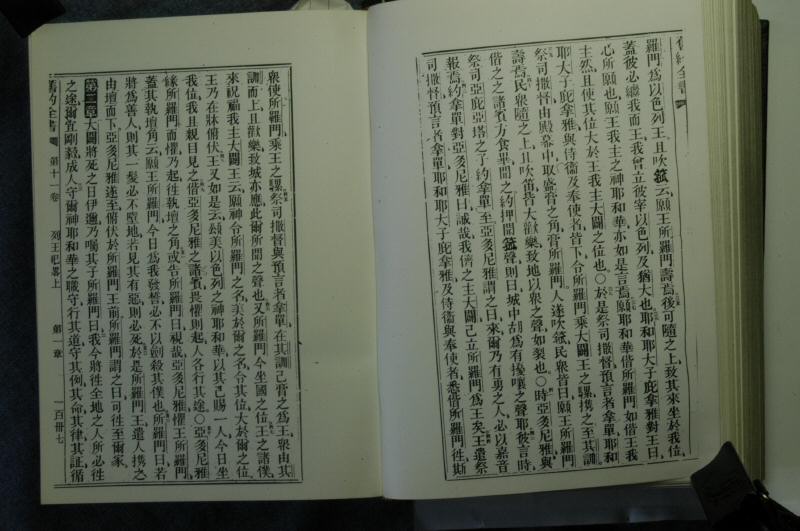 舊約全書
羅門爲以色列王且吹箛云願王所羅門壽焉後可隨之上致其來坐於我位
蓋彼必繼我而王我曾立彼宰以色列及猶大也耶和耶大子庇拿雅對王曰
心所願也願王我主之神耶和華亦如是言焉願耶和華偕所羅門如偕王我
主然且使其位大於王我主大闢之位也○於是祭司撒督預言者拿單耶和
耶大子庇拿雅與侍衛及奉使者皆下令所羅門乘大闢王之騾携之至其訓
祭司撒督由殿幕中取盛膏之角膏所羅門人遂吹箛民衆皆曰願王所羅門
壽焉民衆隨之上且吹笛皆大歡樂致地以衆之聲如裂也○時亞多尼雅與
偕之之諸賓方食畢聞之約押聞箛聲則曰城中胡爲有擾嚷之聲耶彼言時
祭司亞庇亞塔之子約拿單至亞多尼雅謂之曰來爾乃有勇之人必以嘉音
報焉約拿單對亞多尼雅曰誠哉我儕之主大闢已立所羅門爲王矣王遣祭
司撒督預言者拿單耶和耶大子庇拿雅及侍衛與奉使者悉偕所羅門徃斯
衆使所羅門乘王之騾祭司撒督與預言者拿單在其訓已膏之爲王衆由其
訓而上且歡樂致城亦應此爾所聞之聲也又所羅門今坐國之位王之諸僕
來祝福我主大闢王云願神令所羅門之名美於爾之名令其位大於爾之位
王乃在牀俯伏王又如是云頌美以色列之神耶和華以其已賜一人今日坐
我位我且親目見之偕亞多尼雅之諸賓畏懼則起人各行其途○亞多尼雅
緣所羅門而懼乃起徃執壇之角或告所羅門曰視哉亞多尼雅懼王所羅門
蓋其執壇角云願王所羅門今日爲我發誓必不以劍殺其僕也所羅門曰若
將爲善人則其一髮必不墮地若見其有惡則必死於是所羅門王遣人携之
由壇而下亞多尼雅遂至俯伏於所羅門王前所羅門謂之曰可徃至爾家
第二章大闢將死之日伊邇乃囑其子所羅門曰我今將徃全地之人所必徃
之途爾宜剛毅成人守爾神耶和華之職守行其道守其例其命其律其証循
舊約全書 第十一卷 列王紀畧上 第一章 一百卅七